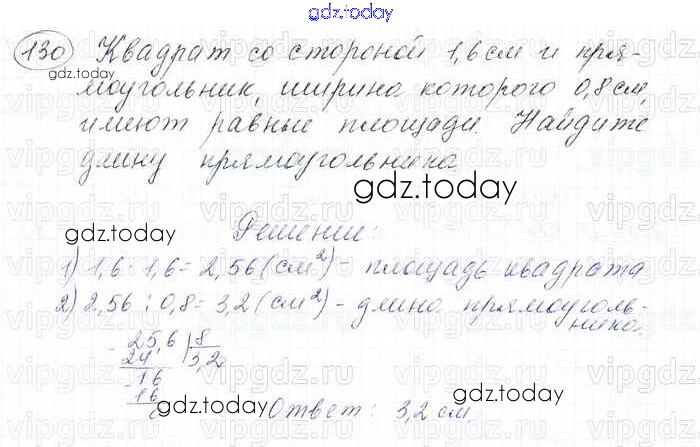 gdz.today
130 Квадрат со стороной 1,6 см и пря-
gdz.today
моугольник, ширина которого 0,8 см,
имеют равные площади. Найдите
длину прямоугольника.
gdz.today
gdz.today
Решение:
1) 1,6 · 1,6 = 2,56 (см²) - площадь квадрата
2) 2,56 : 0,8 = 3,2 (см²) - длина прямоуголь-
ника.
25,6 | 8
24 3,2
16
16
0
gdz.today
gdz.today
Ответ: 3,2 см.
gdz.today